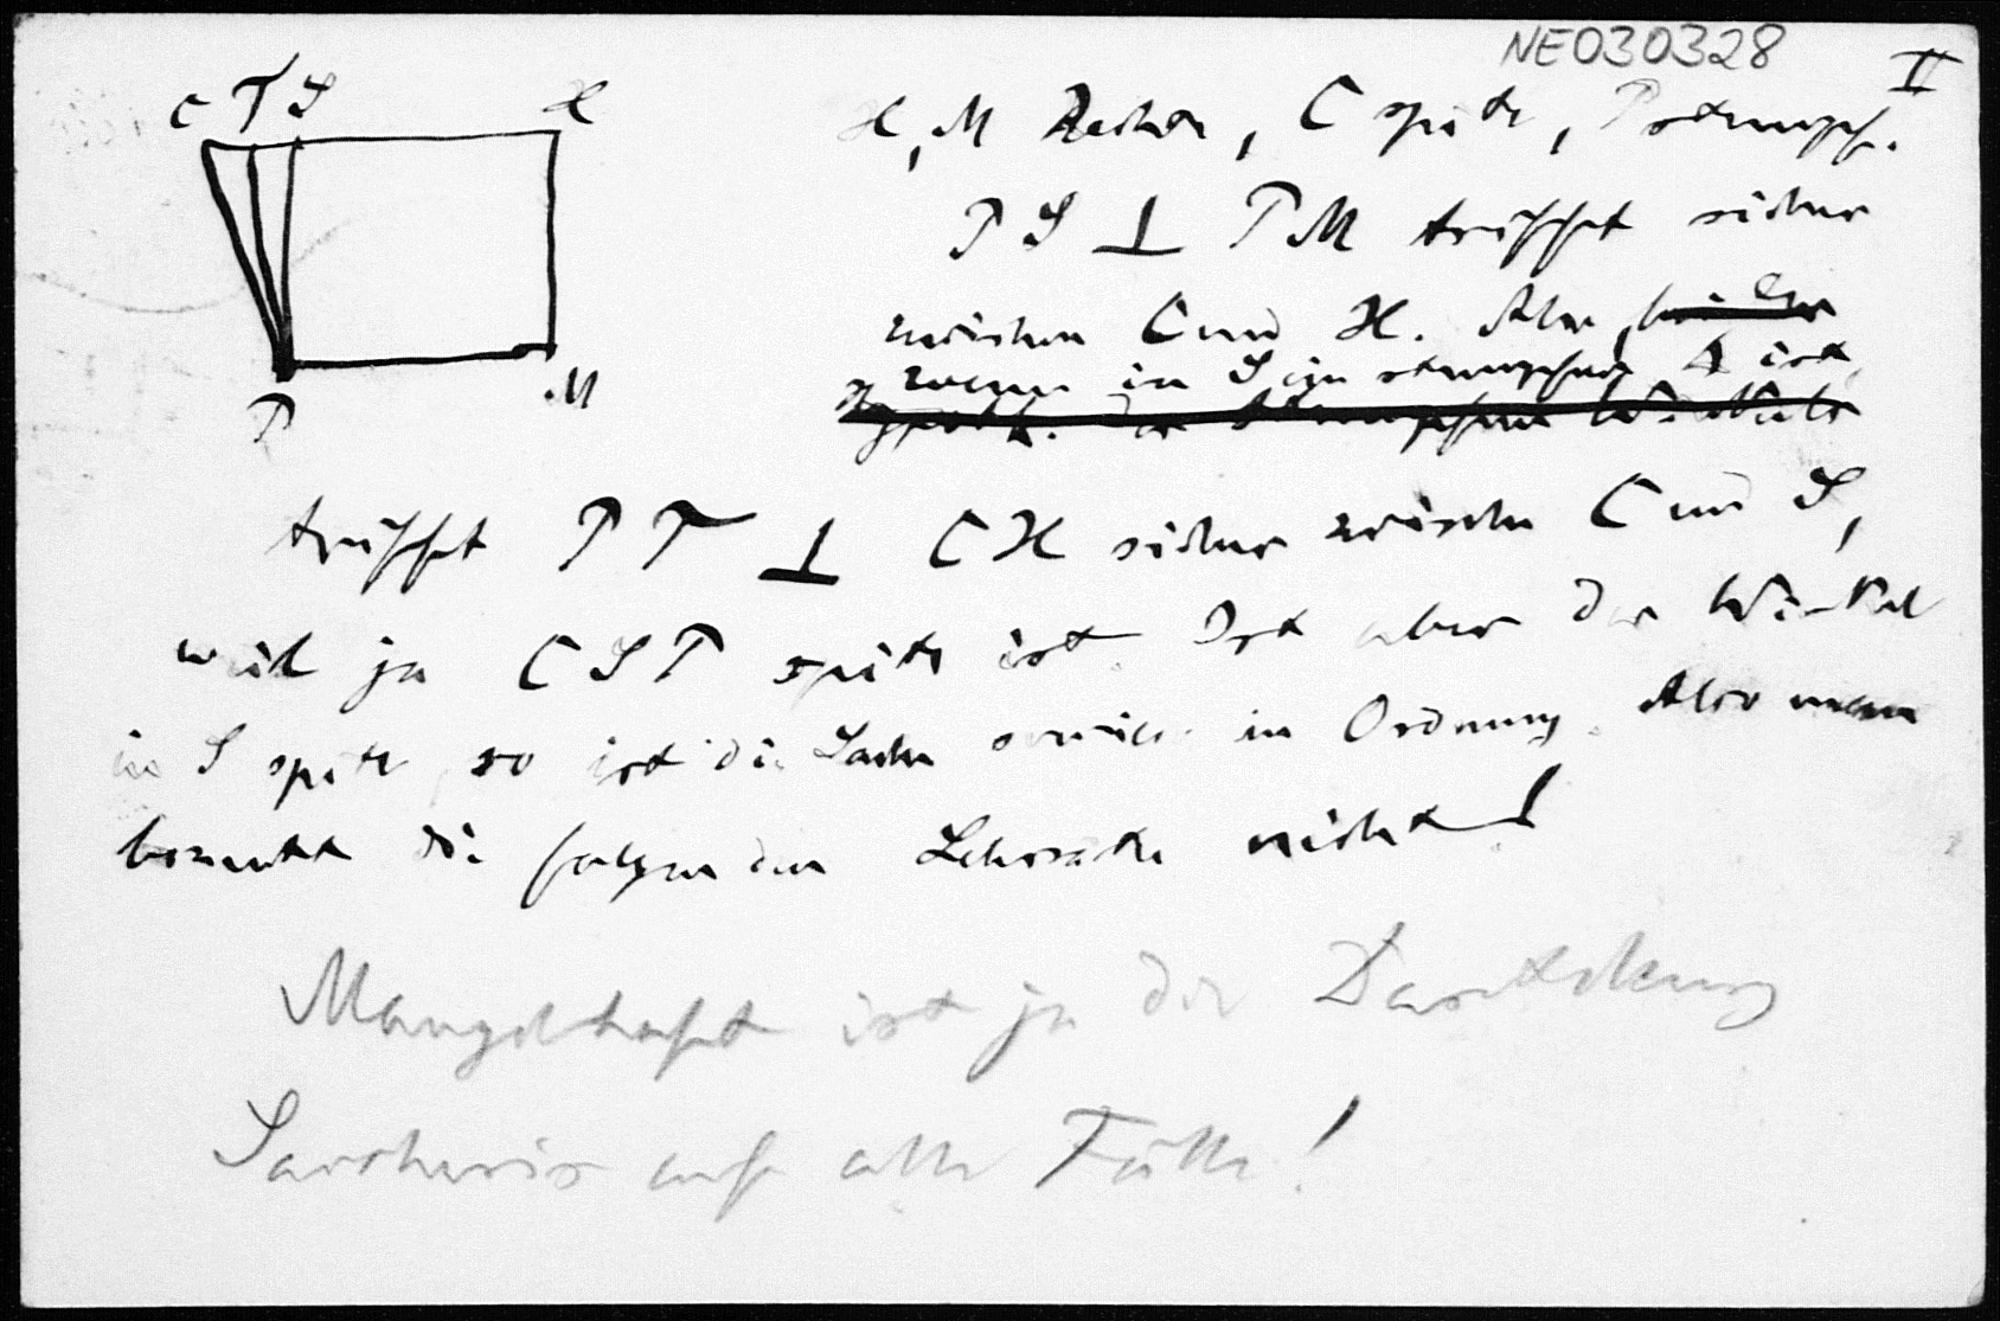 NE030328
II
C T S H
P M
H, M Rechte, C spitz, P stumpf.
PS ⊥ PM trifft sicher
zwischen C und H. Aber bei der
wenn in S ein stumpfer ∧ ist,
der stumpfen Winkels
trifft PT ⊥ CH sicher zwischen C und S,
weil ja CSP spitz ist. Ist aber der Winkel
in S spitz, so ist die Sache sowieso in Ordnung. Also man
benutzt die folgenden Lehrsätze nicht!
Mangelhaft ist ja die Darstellung
Saccheris auf alle Fälle!